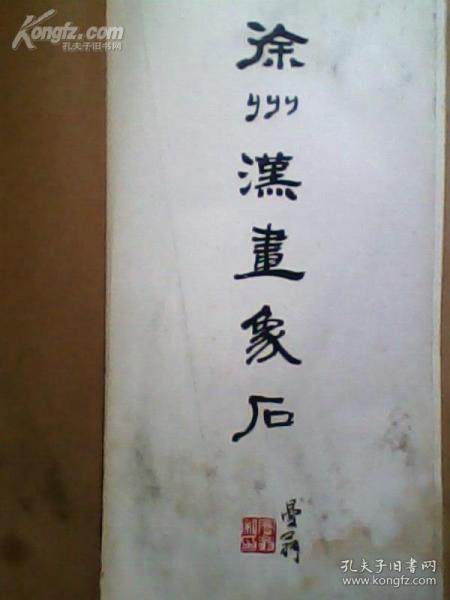 Kongfz.com
孔夫子旧书网
徐州漢畫象石
曼翁
孔夫子旧书网
www.kongfz.com